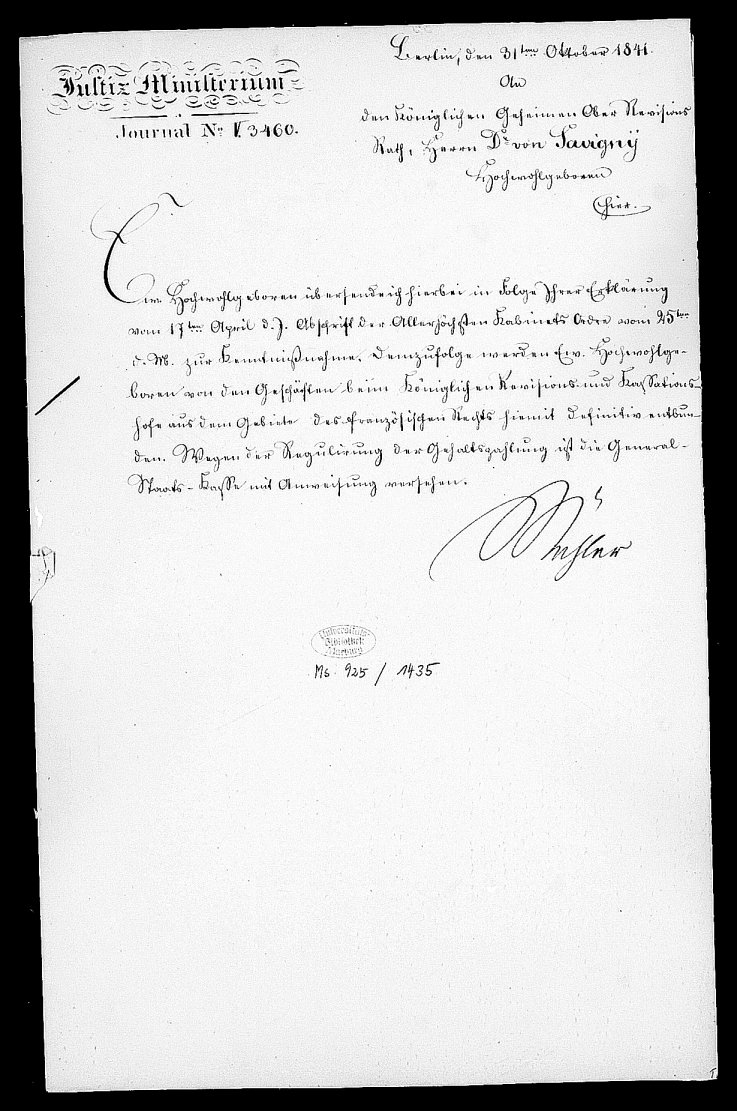 Berlin, den 31ten Oktober 1841.
Justiz Ministerium
Journal No. V 3460.
An
den Königlichen Geheimen Ober Revisions
Rath, Herrn Dr von Savigny
Hochwohlgeboren
hier.
Ew. Hochwohlgeboren übersende ich hierbei in Folge Ihrer Erklärung
vom 17ten April d. J. Abschrift der Allerhöchsten Kabinets Ordre vom 25ten
d. M. zur Kenntnißnahme. Demzufolge werden Ew. Hochwohlge-
boren von den Geschäften beim Königlichen Revisions- und Kassations-
hofe aus dem Gebiete des französischen Rechts hiemit definitiv entbun-
den. Wegen der Regulirung der Gehaltszahlung ist die General-
Staats-Kasse mit Anweisung versehen.
Mühler
Universitäts
Bibliothek
Marburg
Ms. 925 / 1435